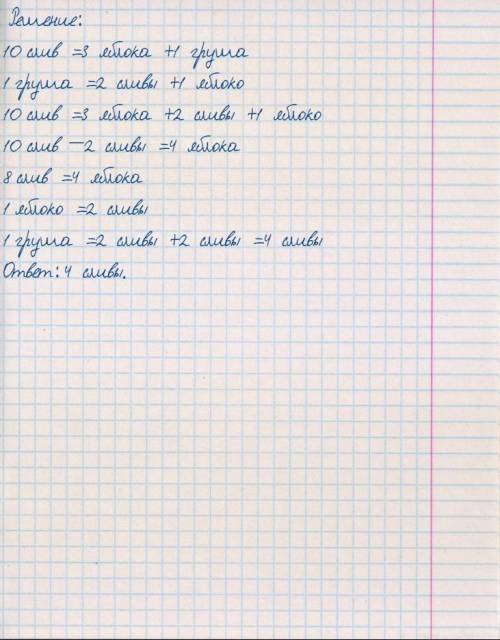 Решение:
10 слив =3 яблока +1 груша
1 груша =2 сливы +1 яблоко
10 слив =3 яблока +2 сливы +1 яблоко
10 слив —2 сливы =4 яблока
8 слив =4 яблока
1 яблоко =2 сливы
1 груша =2 сливы +2 сливы =4 сливы
Ответ: 4 сливы.